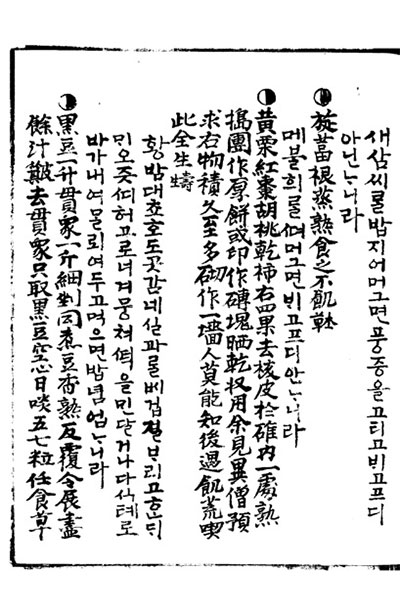 새삼씨룰밥지어머그면풍증을고티고비고프디
아닌ᄂᆞ니라
旋葍根蒸熟食之不飢
메불희룰ᄠᅥ머그면비고프디안ᄂᆞ니라
黃栗紅棗胡桃乾柿右四果去核皮於碓內一處熟
搗團作厚餅或印作磚塊晒乾收用余見異僧預
求右物積久至多砌作一墻人莫能知後遇飢荒喫
此全生
황밤대쵸호도곳감네실과룰ᄲᅦ겁질ᄇᆞ리고ᄒᆞᆫᄃᆡ
민오즛디허고로녀겨뭉쳐ᄯᅥᆨ을민ᄃᆞᆯ거나다식톄로
바가내여ᄆᆞᆯ뢰여두고먹으면밥념업ᄂᆞ니라
黑豆一升貫衆一斤細剉同煮豆香熟反覆令展盡
餘汁簸去貫衆只取黑豆空心日啖五七粒任食草